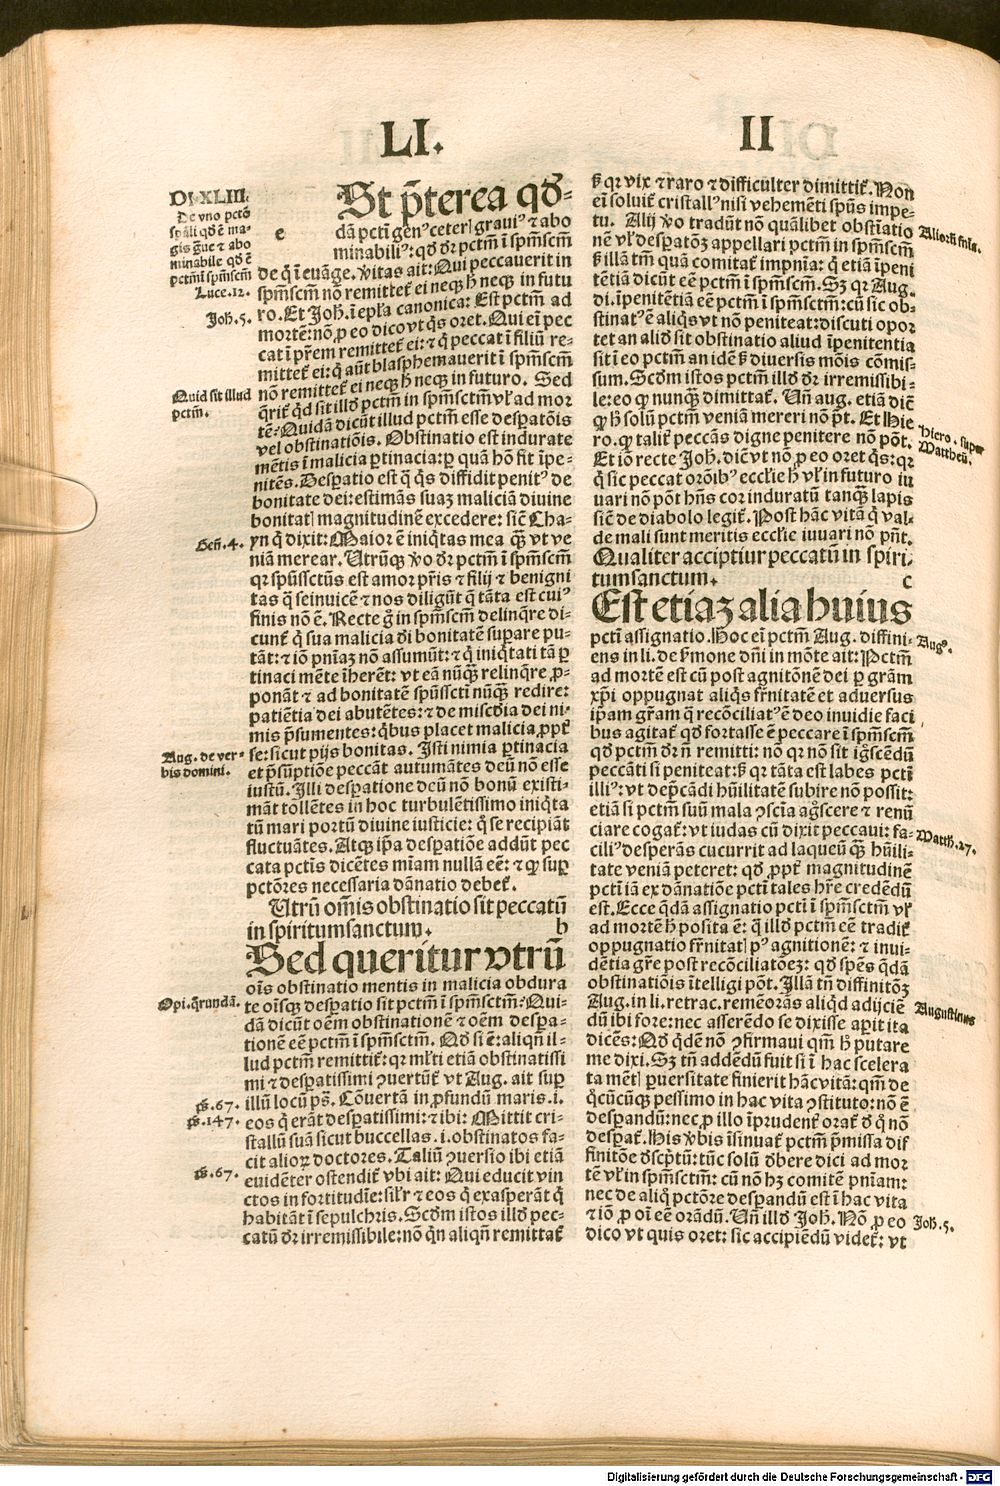 LI.
II
DI. XLIII.
De vno pctō
sp̄ali qđ ē ma-
gis g̃ue ⁊ abo
minabile qđ ē
pctm̄ ī spm̄scm̄
Luce.12.
Joh̄.5.
Quid sit illud
pctm̄.
Geñ.4.
Aug. de ver-
bis domini.
Opi.q̄rundā.
ps̄.67.
ps̄.147.
ps̄.67.
e
St p̄terea qđ-
dā pctī gen⁹ ceteris graui⁹ ⁊ abo
minabili⁹: qđ dr̄ pctm̄ ī spm̄scm̄
de q̄ ī euāge. v̄itas ait: Qui peccauerit in
spm̄scm̄ nō remittet̄ ei neqꝫ h̄ neqꝫ in futu
ro. Et Joh̄. ī epl̄a canonica: Est pctm̄ ad
mortē: nō ꝓ eo dico vt q̄s oret. Qui eī pec
cat ī pr̄em remittet̄ ei: ⁊ q̄ peccat ī filiū re-
mittet̄ ei: q̄ aūt blasphemauerit ī spm̄scm̄
nō remittet̄ ei neqꝫ h̄ neqꝫ in futuro. Sed
q̄rit̄ qđ sit illđ pctm̄ in spm̄sctm̄ vl̄ ad mor
tē. Quidā dicūt illud pctm̄ esse despatōis
vel obstinatiōis. Obstinatio est indurate
mētis ī malicia ꝑtinacia: ꝑ quā hō fit īpe-
nitēs. Despatio est q̄ q̄s diffidit penit⁹ de
bonitate dei: estimās suaꝫ maliciā diuine
bonitatꝭ magnitudinē excedere: sic̄ Cha-
yn q̄ dixit: Maior ē iniq̄tas mea qꝫ̄ vt ve
niā merear. Utrūqꝫ v̄o dr̄ pctm̄ ī spm̄scm̄
qꝛ spūssctūs est amor pr̄is ⁊ filij ⁊ benigni
tas q̄ seinuicē ⁊ nos diligūt q̄ tāta est cui⁹
finis nō ē. Recte g̊ in spm̄scm̄ delinq̄re di-
cunt̄ q̄ sua malicia di bonitatē supare pu-
tāt: ⁊ iō pnīaꝫ nō assumūt: ⁊ q̄ iniq̄tati tā ꝑ
tinaci mēte īherēt: vt eā nūqꝫ̄ relinq̄re ꝓ-
ponāt ⁊ ad bonitatē spūssctī nūqꝫ̄ redire:
patiētia dei abutētes: ⁊ de miscd̄ia dei ni-
mis p̄sumentes: q̄bus placet malicia ꝓpt̄
se: sicut pijs bonitas. Isti nimia ꝑtinacia
et p̄sūptiōe peccāt autumātes deū nō esse
iustū. Illi despatione deū nō bonū existi-
māt tollētes in hoc turbulētissimo iniq̄ta
tū mari portū diuine iusticie: q̄ se recipiāt
fluctuātes. Atqꝫ ip̄a despatiōe addūt pec
cata pctīs dicētes mīam nullā eē: ⁊ qꝫ sup
pctōres necessaria dānatio debet̄.
Utrū om̄is obstinatio sit peccatū
in spiritumsanctum. b
Sed queritur vtrū
oīs obstinatio mentis in malicia obdura
te oīsqꝫ despatio sit pctm̄ ī spm̄sctm̄: Qui-
dā dicūt oēm obstinationē ⁊ oēm despa-
tionē eē pctm̄ ī spm̄sctm̄. Qđ si ē: aliqn̄ il-
lud pctm̄ remittit̄: qꝛ ml̄ti etiā obstinatissi
mi ⁊ despatissimi ꝯuertūt̄ vt Aug. ait sup
illū locū ps̄. Cōuertā in ꝓfundū maris. i.
eos q̄ erāt despatissimi: ⁊ ibi: Mittit cri-
stallū suā sicut buccellas. i. obstinatos fa-
cit alioꝝ doctores. Taliū ꝯuersio ibi etiā
euidēter ostendit̄ vbi ait: Qui educit vin
ctos in fortitudīe: sil̄r ⁊ eos q̄ exasperāt q̄
habitāt ī sepulchris. Scđm istos illđ pec-
catū dr̄ irremissibile: nō q̄n aliqn̄ remittat̄
ß qꝛ vix ⁊ raro ⁊ difficulter dimittit̄. Non
eī soluit̄ cristall⁹ nisi vehemēti spūs impe-
tu. Alij v̄o tradūt nō quālibet obstīatio
nē vl̄ despatōꝫ appellari pctm̄ in spm̄scm̄
ß illā tm̄ quā comitat̄ impnīa: q̄ etiā īpeni
tētia dicūt eē pctm̄ ī spm̄scm̄. Sꝫ qꝛ Aug.
di. īpenitētiā eē pctm̄ ī spm̄sctm̄: cū sic ob-
stinat⁹ ē aliq̄s vt nō peniteat: discuti opor
tet an aliđ sit obstinatio aliud īpenitentia
sit ī eo pctm̄ an idē ß diuersis mōis cōmis-
sum. Scđm istos pctm̄ illđ dr̄ irremissibi-
le: eo qꝫ nunqꝫ̄ dimittat̄. Un̄ aug. etiā dic̄
qꝫ h̄ solū pctm̄ veniā mereri nō pt̄. Et Hie
ro. qꝫ talit̄ peccās digne penitere nō pōt.
Et iō recte Joh̄. dic̄ vt nō ꝓ eo oret q̄s: qꝛ
q̄ sic peccat orōib⁹ eccl̄ie h̄ vl̄ in futuro iu
uari nō pōt hn̄s cor induratū tanqꝫ̄ lapis
sic̄ de diabolo legit̄. Post hāc vitā q̄ val-
de mali sunt meritis eccl̄ie iuuari nō pn̄t.
Qualiter acciptiur peccatū in spiri-
tumsanctum. c
Est etiaꝫ alia huius
pctī assignatio. Hoc eī pctm̄ Aug. diffini-
ens in li. de ẜmone dn̄i in mōte ait: Pctm̄
ad mortē est cū post agnitōnē dei ꝑ grām
xp̄i oppugnat aliq̄s fr̄nitatē et aduersus
ip̄am gr̄am q̄ recōciliat⁹ ē deo inuidie faci
bus agitat̄ qđ fortasse ē peccare ī spm̄scm̄
qđ pctm̄ dr̄ nō remitti: nō qꝛ nō sit ignoscēdū
peccāti si peniteat: ß qꝛ tāta est labes pctī
illi⁹: vt dep̄cādi hūilitatē subire nō possit:
etiā si pctm̄ suū mala ꝯscīa agnoscere ⁊ renū
ciare cogat̄: vt iudas cū dixit peccaui: fa-
cili⁹ desperās cucurrit ad laqueū qꝫ̄ hūili-
tate veniā peteret: qđ ꝓpt̄ magnitudinē
pctī iā ex dānatiōe pctī tales hr̄e credēdū
est. Ecce q̄dā assignatio pctī ī spm̄sctm̄ vl̄
ad mortē h̄ posita ē: q̄ illđ pctm̄ eē tradit̄
oppugnatio fr̄nitatꝭ p⁹ agnitionē: ⁊ inui-
dētia gr̄e post recōciliatōeꝫ: qđ spēs q̄dā
obstinatiōis ītelligi pōt. Illā tn̄ diffinitōꝫ
Aug. in li. retrac. remēorās aliqđ adijciē
dū ibi fore: nec asserēdo se dixisse apit ita
dicēs: Qđ q̄dē nō ꝯfirmaui qm̄ h̄ putare
me dixi. Sꝫ tn̄ addēdū fuit si ī hac scelera
ta mētꝭ ꝑuersitate finierit hāc vitā: qm̄ de
q̄cūcqꝫ pessimo in hac vita ꝯstituto: nō ē
despandū: nec ꝓ illo īprudent̄ orat̄ đ q̄ nō
despat̄. His v̄bis īsinuat̄ pctm̄ p̄missa dif
finitōe đscp̄tū: tūc solū đbere dici ad mor
tē vl̄ in spm̄sctm̄: cū nō hꝫ comitē pnīam:
nec de aliq̄ pctōre despandū est ī hac vita
⁊ iō ꝓ oī eē orādū. Un̄ illđ Joh̄. Nō ꝓ eo
dico vt quis oret: sic accipiēdū videt̄: vt
Alioꝝ s̄nīa.
Hiero. super
Mattheū.
Augꝰ.
Matth̄.27.
Augustinus
Joh̄.5.
Digitalisierung gefördert durch die Deutsche Forschungsgemeinschaft - DFG